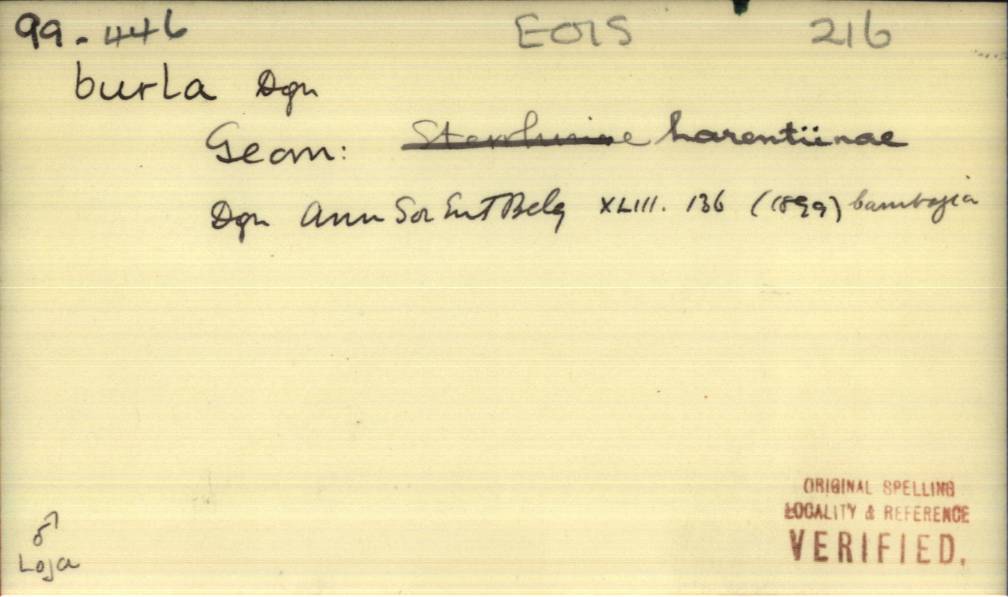 99-446 EOIS 216
burla Dgn
Geom: Sterrhinae Larentiinae
Dgn Ann Soc Ent Belg XLIII. 136 (1899) bambajia
ORIGINAL SPELLING
LOCALITY & REFERENCE
VERIFIED.
♂
Loja